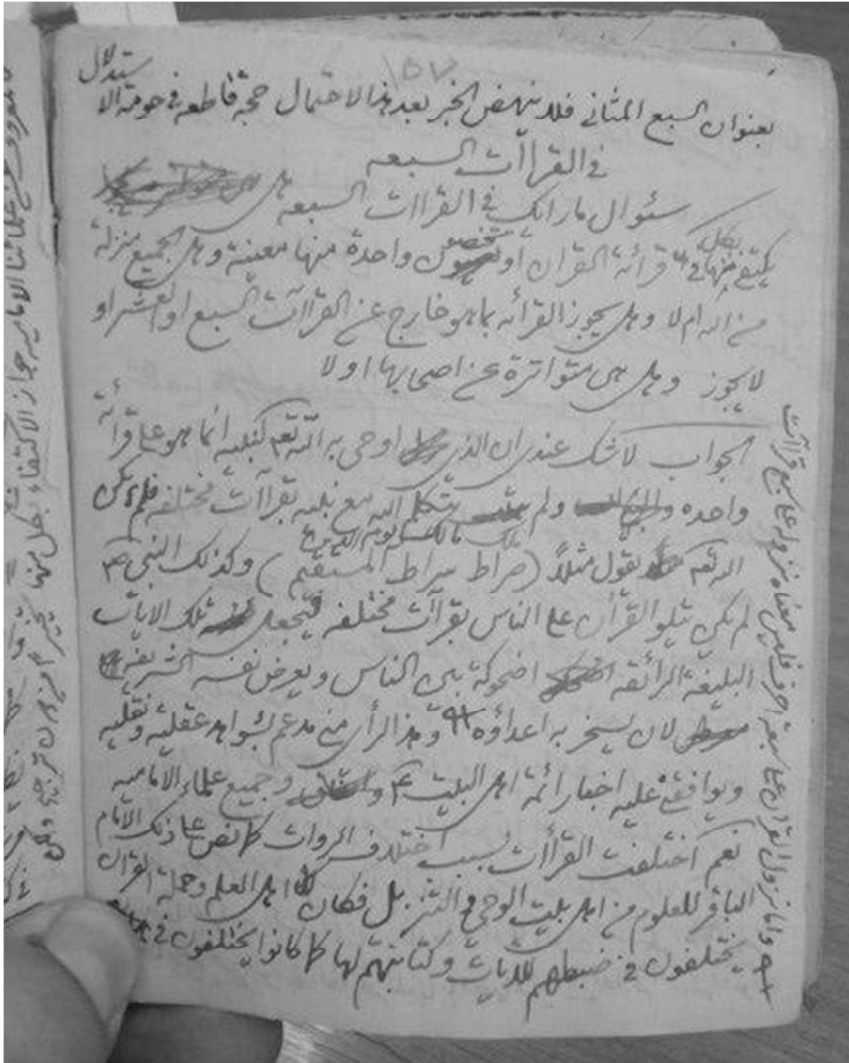 ١٥٧
بعنوان السبع المثاني فلا ينهض الخبر بعد هذا الاحتمال حجة قاطعه في حومة الا
ستدلال
في القراآت السبعه
سئوال ما رايك في القراات السبعه هل
يكتفى بكل منها في قرائة القران او بخصوص واحدة منها معينة وهل الجميع منزلة
من الله ام لا وهل يجوز القرائه بما هو خارج عن القراآت السبع او العشر او
لا يجوز وهل هى متواترة عن اصحابها او لا
الجواب لا شك عندى ان الذى اوحى به الله تعم لنبيه انما هو على قرائة
واحده ولم يتكلم الله مع نبيه بقراآت مختلفه فلم يكن
ملك مالك يوم الدين
الله تعم يقول مثلاً (صراط سراط المستقيم) وكذلك النبي ص
لم يكن يتلو القرأن على الناس بقراآت مختلفه فيجعل تلك الايات
البليغة الرائقه اضحوكة بين الناس ويعرض نفسه الشريفه
لان يسخر به اعداؤه وهذا الرأى مدعم بشواهد عقليه ونقليه
ويوافقنى عليه اخبار ائمة اهل البيت ع وجميع علماء الاماميه
نعم اختلفت القرأآت بسبب اختلاف الروات كما نص على ذلك الامام
الباقر للعلوم من اهل بيت الوحى والتنزيل فكان اهل العلم وحملة القران
يختلفون في ضبطهم للايات وكتابتهم لها كما كانوا يختلفون في
واما نزول القران على سبعة احرف فليس معناه نزوله على سبع قراآت
علمائنا الاماميه جواز الاكتفاء بكل منها